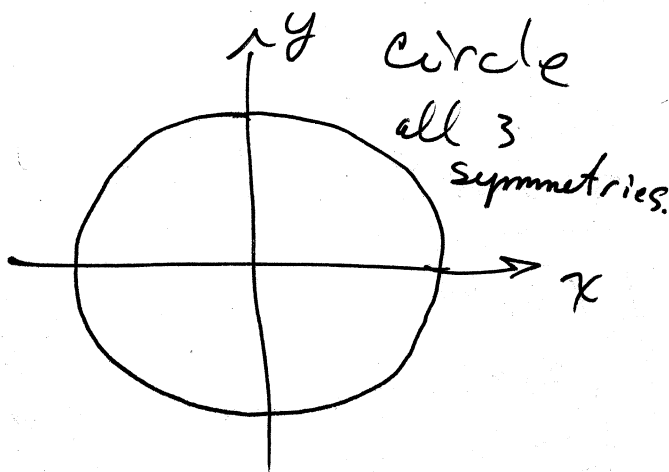 y
circle
all 3
symmetries.
x